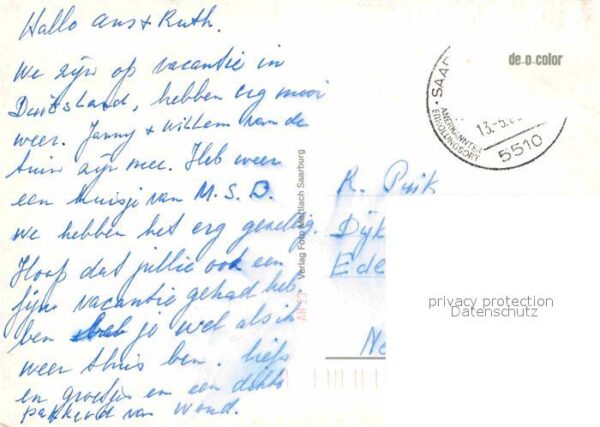 Hallo Ans + Ruth.
We zijn op vacantie in
Duitsland, hebben erg mooi
weer. Janny + Willem van de
tuin zijn mee. Heb weer
een huisje van M.S.D.
we hebben het erg gezellig.
Hoop dat jullie ook een
fijne vacantie gehad heb
ben je wel als ik
weer thuis ben. liefs
en groetjes en een dikke
pakkerd van Woud.
Verlag Foto Mettlach Saarburg
de-o-color
SAAR
ANERKANNTER
ERHOLUNGSORT
13.-5.
5510
K. Puik
Dijk
Ede
Ne
privacy protection
Datenschutz